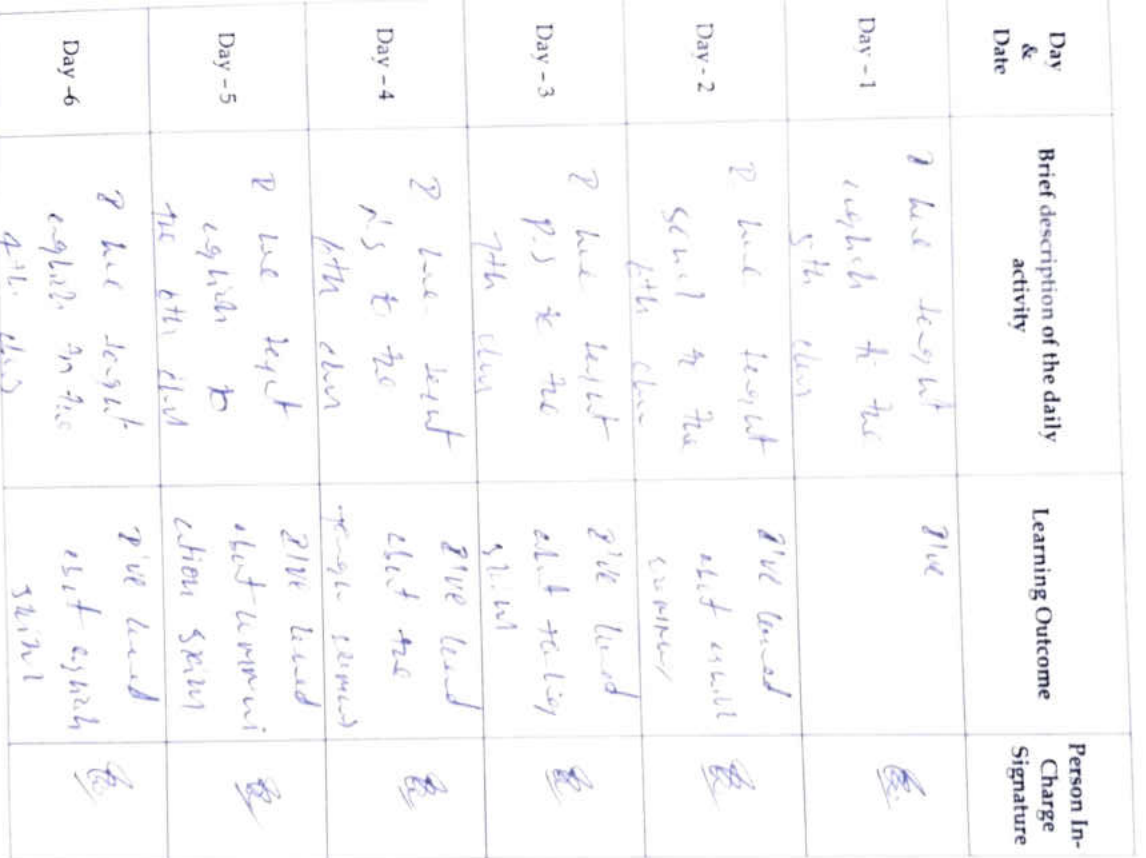 Day
&
Date
Brief description of the daily
activity
Learning Outcome
Person In-
Charge
Signature
Day - 1
I have teaght
english to the
5th class
I've
Day - 2
I have teaght
to the
class
I've learned
about
Day - 3
I have teaght
P.S to the
7th class
I've learned
about
skills
Day - 4
I have teaght
to the
class
I've learned
about the
Day - 5
I have teaght
english to
the 6th class
I've learned
about communi
cation skills
Day - 6
I have teaght
english to the
class
I've learned
about english
skills